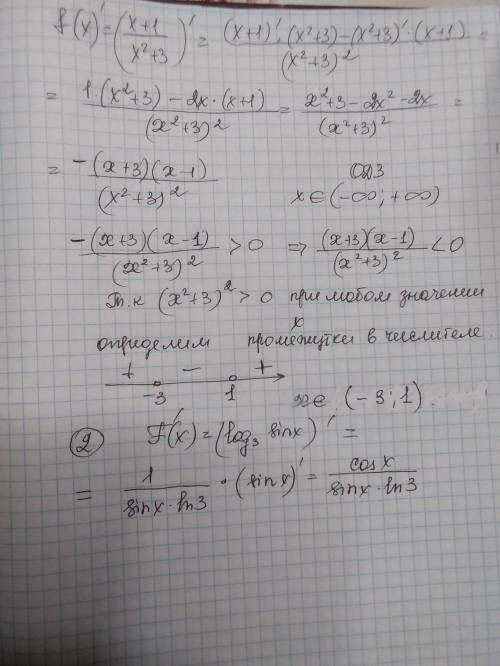 f(x)' = (x+1 / x²+3)' = (x+1)'·(x²+3) − (x²+3)'·(x+1) / (x²+3)² =
= 1·(x²+3) − 2x·(x+1) / (x²+3)² = x²+3−2x²−2x / (x²+3)² =
= −(x+3)(x−1) / (x²+3)² ОДЗ
x∈(−∞; +∞)
−(x+3)(x−1) / (x²+3)² > 0 ⇒ (x+3)(x−1) / (x²+3)² < 0
Т.к (x²+3)² > 0 при любом значении
x
определим промежутки в числителе.
+ − +
−3 1 x∈ (−3; 1).
② F'(x) = (log₃ sinx)' =
= 1 / sinx·ln3 · (sinx)' = cosx / sinx·ln3